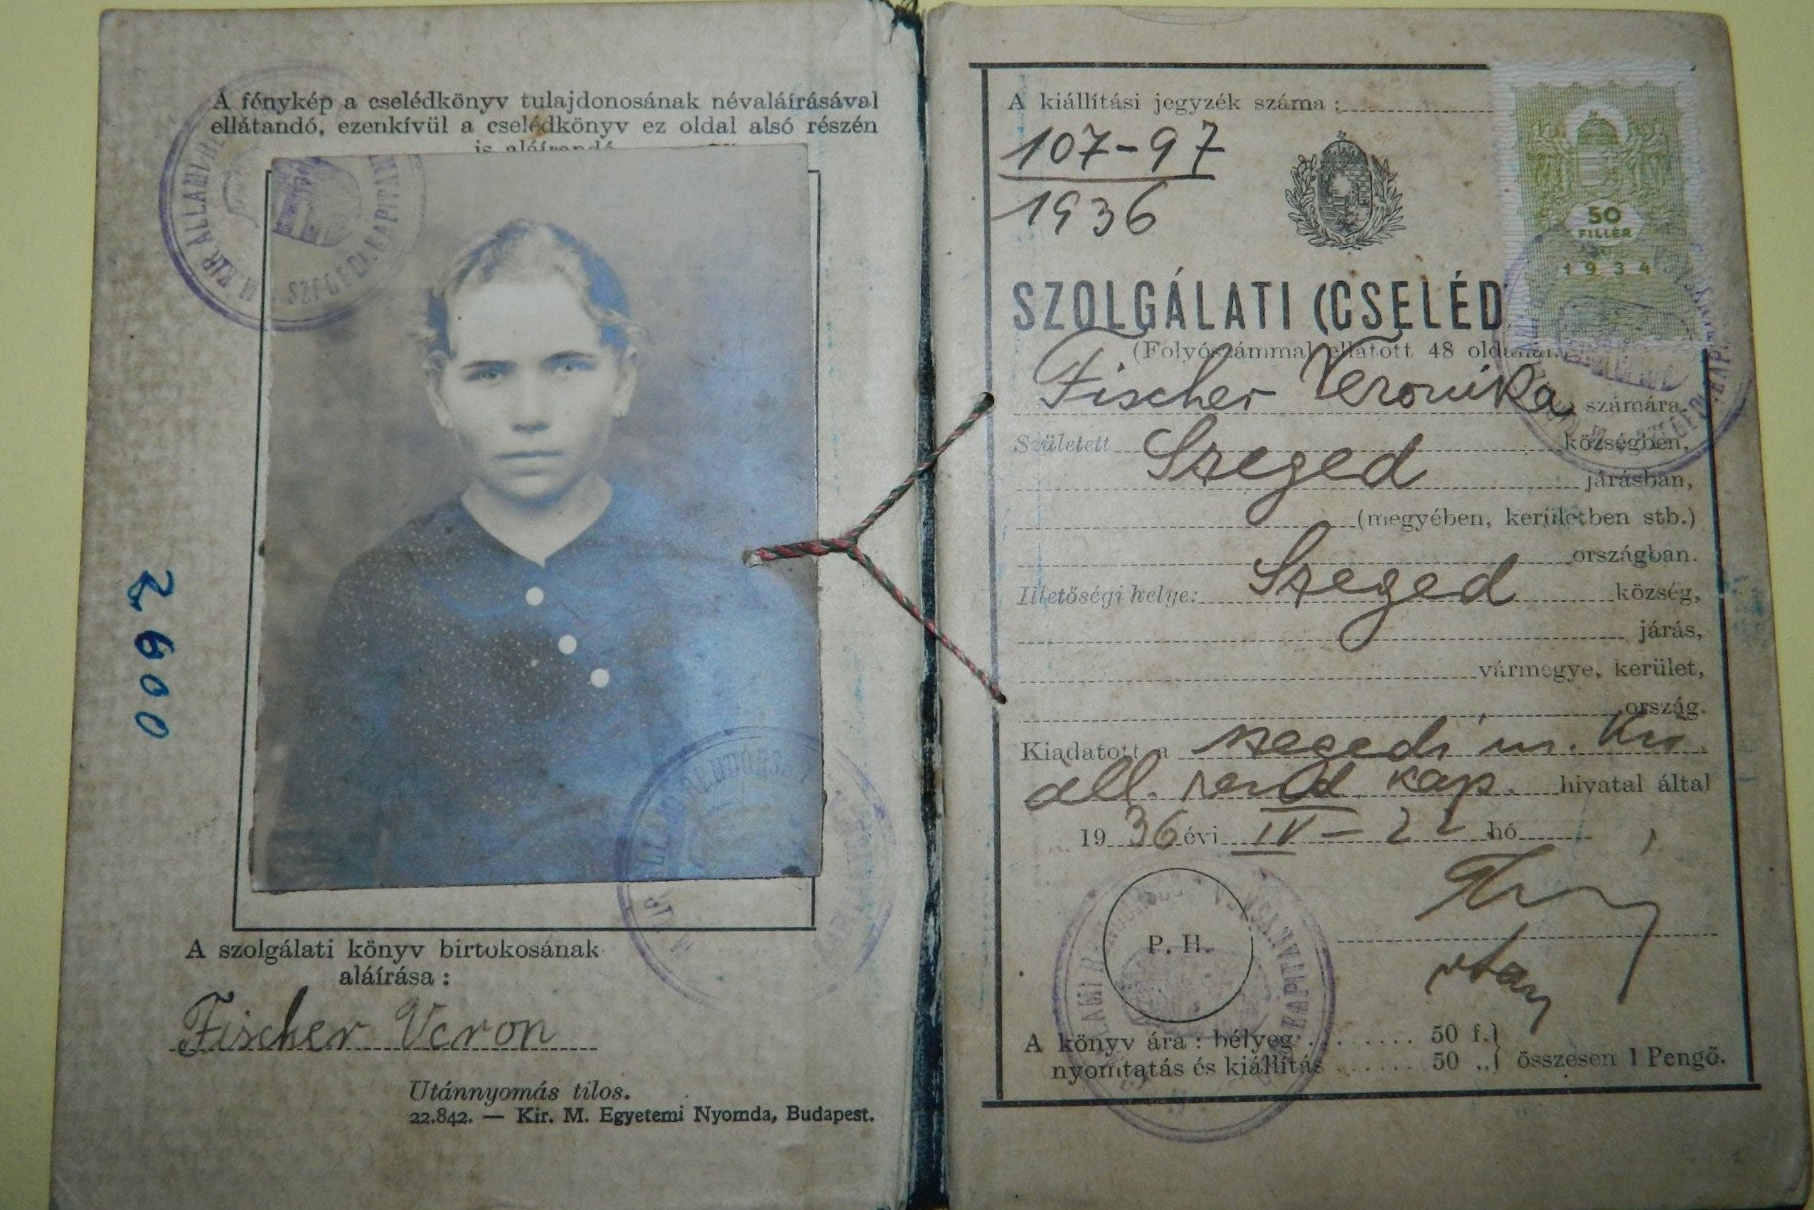 A fénykép a cselédkönyv tulajdonosának névaláírásával
ellátandó, ezenkívül a cselédkönyv ez oldal alsó részén
is aláírandó
M. KIR. ÁLLAMI RE
SZEGEDI KAPITÁNY
2600
A szolgálati könyv birtokosának
aláírása :
Fischer Veron
Utánnyomás tilos.
22.842. — Kir. M. Egyetemi Nyomda, Budapest.
A kiállítási jegyzék száma :
107-97
1936
50
FILLÉR
1934
SZOLGÁLATI (CSELÉD
(Folyószámmal ellátott 48 oldallal.
Fischer Veronika számára.
Született Szeged községben,
járásban,
(megyében, kerületben stb.)
országban.
Illetőségi helye: Szeged község,
járás,
vármegye, kerület,
ország.
Kiadatott a szegedi m. kir.
áll. rend. kap. hivatal által
1936 évi IV-22 hó
P. H.
A könyv ára : bélyeg . . . . . . . 50 f.}
nyomtatás és kiállítás . . . . . 50 „} összesen 1 Pengő.